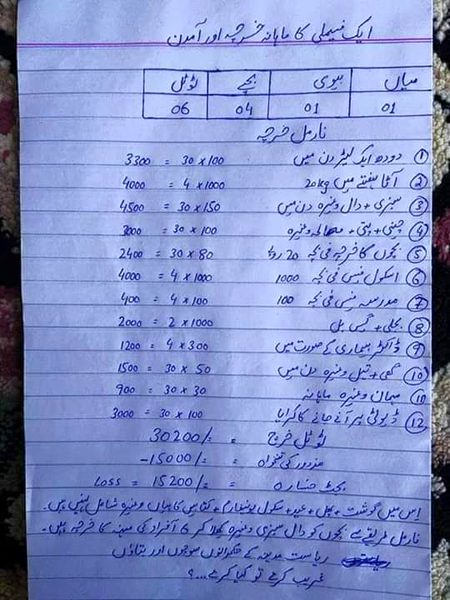 ایک فیملی کا ماہانہ خرچہ اور آمدن
میاں بیوی بچے ٹوٹل
01 01 04 06
نارمل خرچہ
① دودھ ایک لیٹر دن میں 30×100 = 3300
② آٹا ہفتے میں 20kg 4×1000 = 4000
③ سبزی + دال وغیرہ دن میں 30×150 = 4500
④ چینی + پتی + مصالحہ وغیرہ 30×100 = 3000
⑤ بچوں کا خرچہ فی بچہ 20 روپے 30×80 = 2400
⑥ اسکول فیس فی بچہ 1000 4×1000 = 4000
⑦ مدرسہ فیس فی بچہ 100 4×100 = 400
⑧ بجلی + گیس بل 2×1000 = 2000
⑨ ڈاکٹر بیماری کے صورت میں 4×300 = 1200
⑩ گھی + تیل وغیرہ دن میں 30×50 = 1500
⑪ صابن وغیرہ ماہانہ 30×30 = 900
⑫ ڈیوٹی پر آنے جانے کا کرایا 30×100 = 3000
ٹوٹل خرچ = 30200/=
مزدور کی تنخواہ = -15000/=
بجٹ خسارہ = Loss = 15200/=
اس میں گوشت + پھل + عید + سکول یونیفارم + کتابیں کاپیاں وغیرہ شامل نہیں ہیں۔
نارمل طریقے سے بچوں کو دال سبزی وغیرہ کھلا کر 6 افراد کی مہینہ کا خرچہ ہیں۔
ریاست مدینہ کے حکمرانوں سوچوں اور بتاؤں
غریب کرے تو کیا کرے...؟